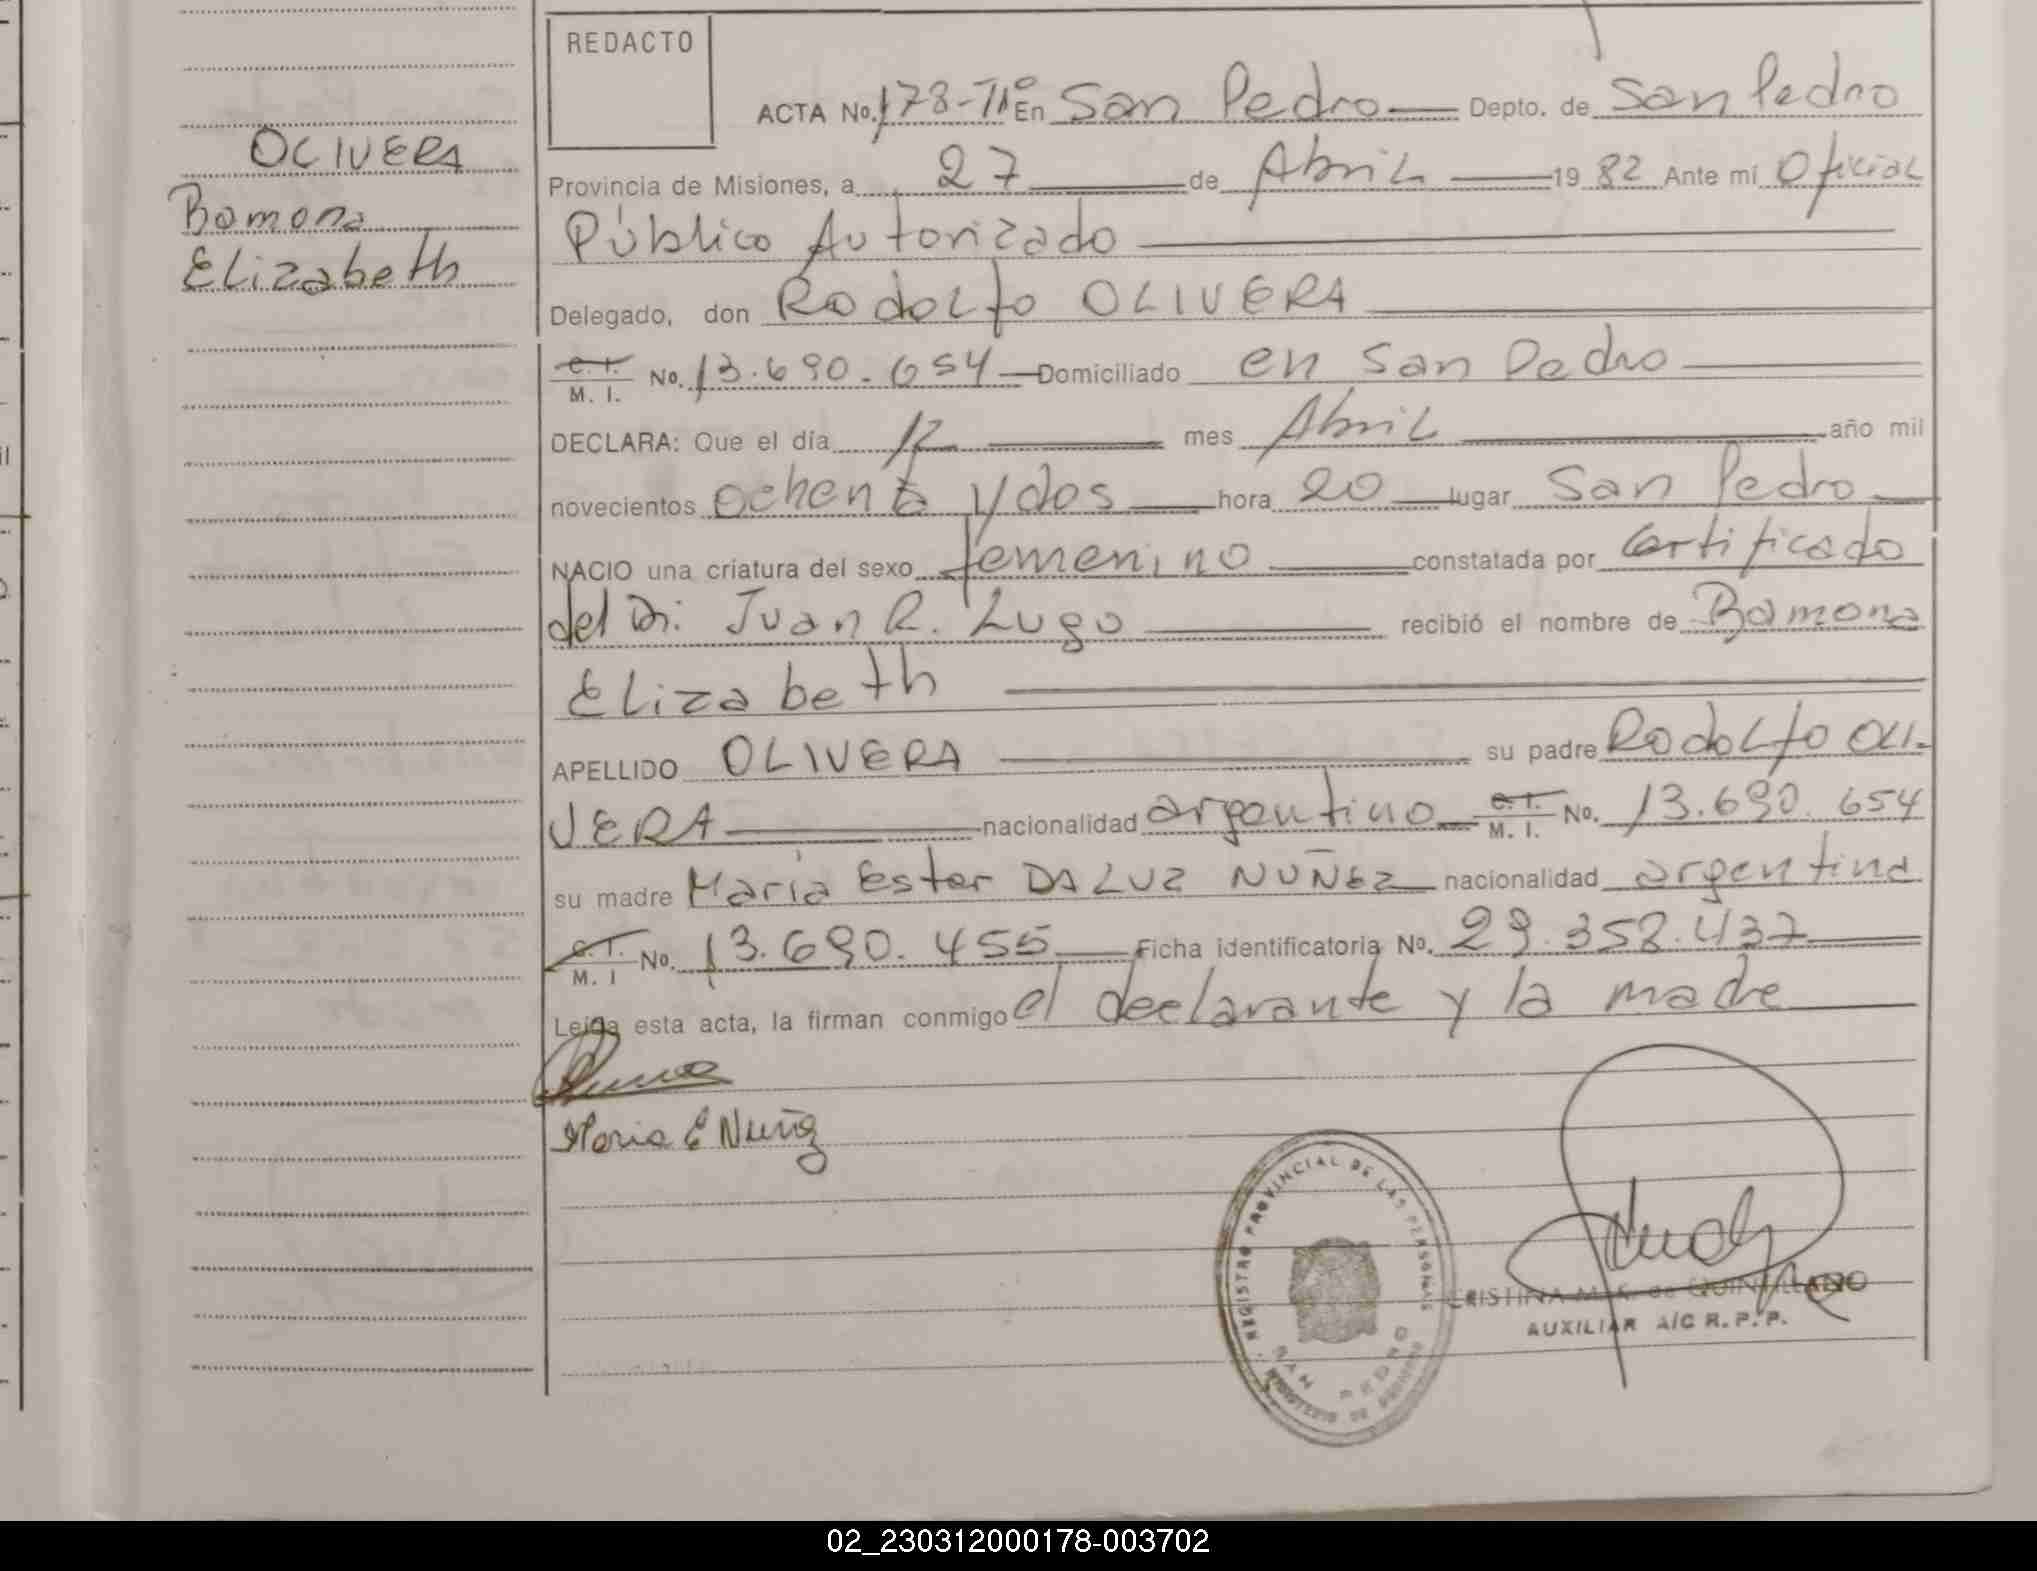 REDACTO
ACTA No. 178-Tº En San Pedro Depto. de San Pedro
OLIVERA
Provincia de Misiones, a 27 de Abril 19 82 Ante mí Oficial
Ramona
Público Autorizado
Elizabeth
Delegado, don Rodolfo OLIVERA
C. I.
M. I. No. 13.690.654 Domiciliado en San Pedro
DECLARA: Que el día 12 mes Abril año mil
novecientos ochenta y dos hora 20 lugar San Pedro
NACIO una criatura del sexo femenino constatada por Certificado
del Dr. Juan R. Lugo recibió el nombre de Ramona
Elizabeth
APELLIDO OLIVERA su padre Rodolfo OLI-
VERA nacionalidad argentino C. I. M. I. No. 13.690.654
su madre María Ester DA LUZ NUÑEZ nacionalidad argentina
C. I. M. I No. 13.690.455 Ficha identificatoria No. 29.352.437
Leída esta acta, la firman conmigo el declarante y la madre
Maria E Nuñez
REGISTRO PROVINCIAL DE LAS PERSONAS
SAN PEDRO
CRISTINA M. de QUINTILLANO
AUXILIAR A/C R.P.P.
02_230312000178-003702